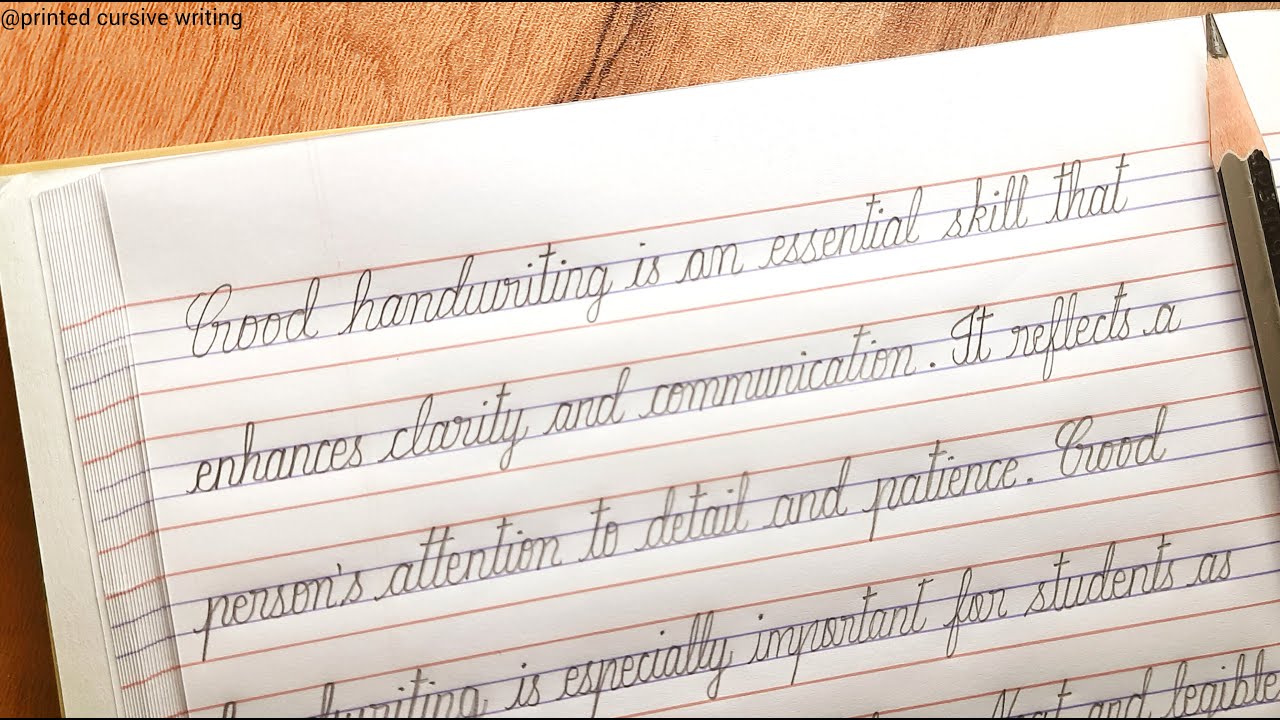 @printed cursive writing
Good handwriting is an essential skill that
enhances clarity and communication. It reflects a
person's attention to detail and patience. Good
handwriting is especially important for students as
Neat and legible